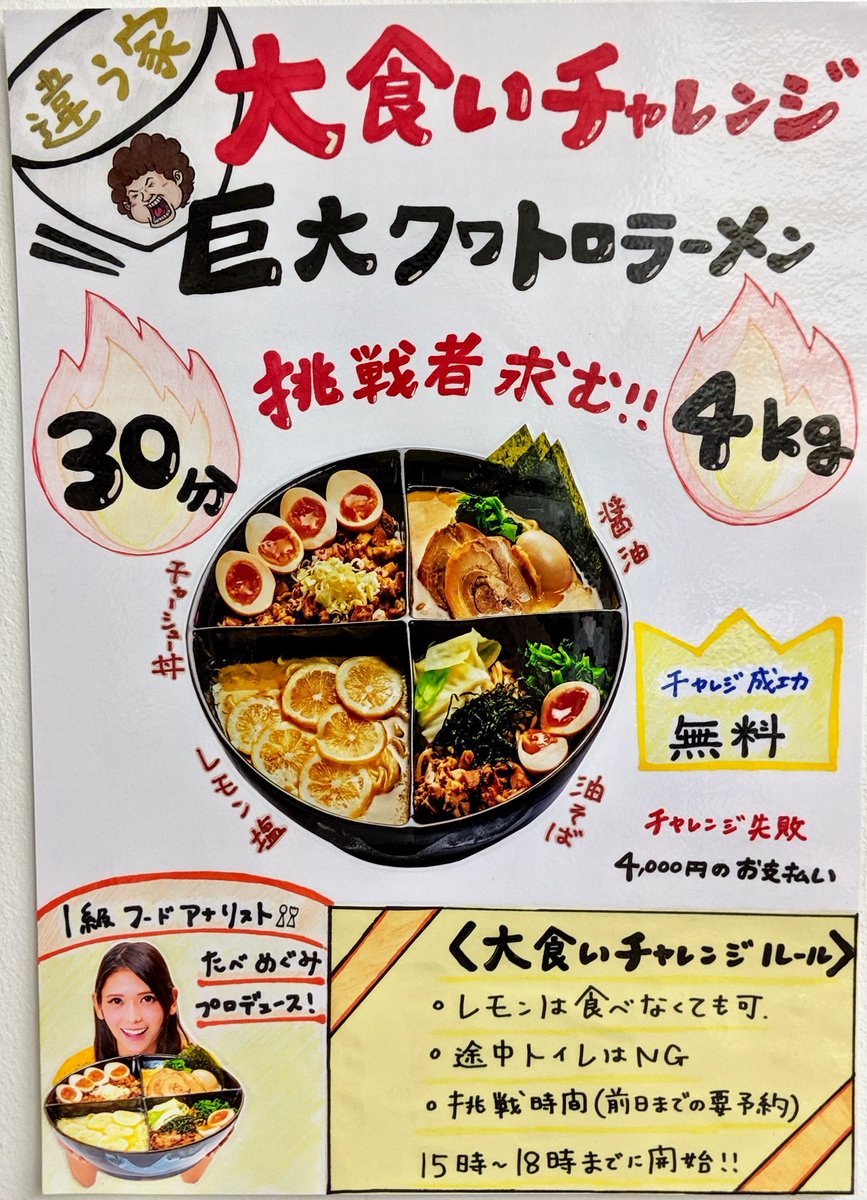 違う家
大食いチャレンジ
巨大クワトロラーメン
挑戦者求む!!
30分
4kg
チャーシュー丼
醤油
レモン塩
油そば
チャレジ成功
無料
チャレンジ失敗
4,000円のお支払い
1級フードアナリスト
たべめぐみ
プロデュース!
〈大食いチャレンジルール〉
○レモンは食べなくても可.
○途中トイレはNG
○挑戦時間(前日までの要予約)
15時~18時までに開始!!